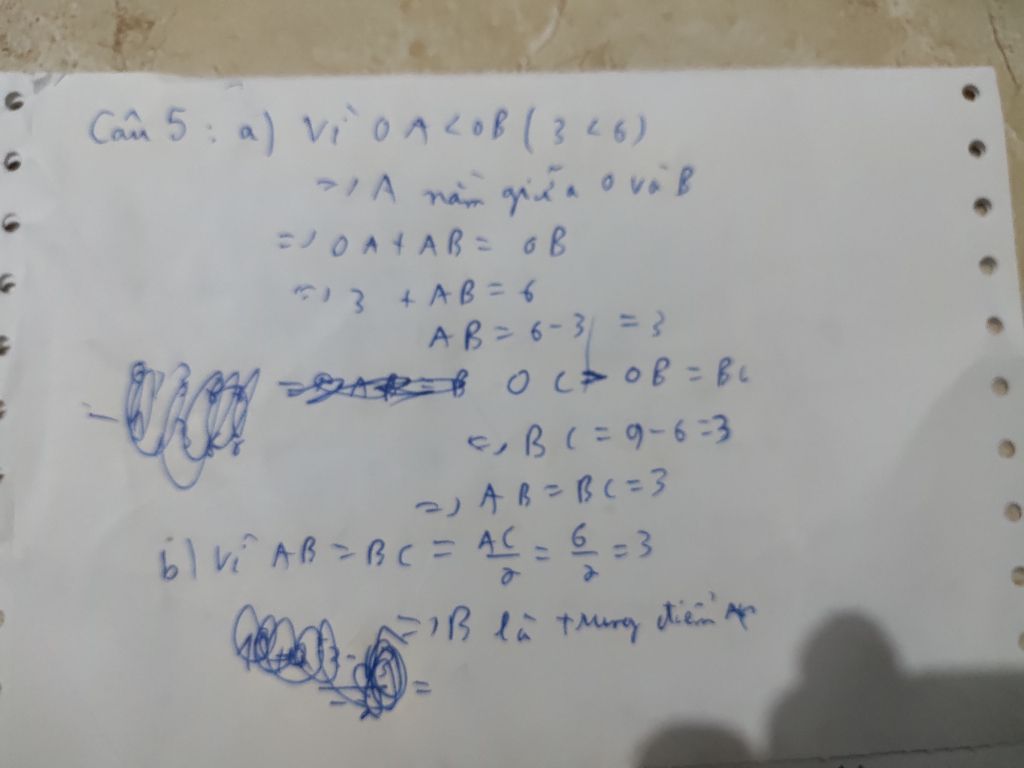 Câu 5: a) Vì OA < OB (3 < 6)
=> A nằm giữa O và B
=> OA + AB = OB
=> 3 + AB = 6
AB = 6 - 3 = 3
OC - OB = BC
=> BC = 9 - 6 = 3
=> AB = BC = 3
b) Vì AB = BC = AC/2 = 6/2 = 3
=> B là trung điểm
=